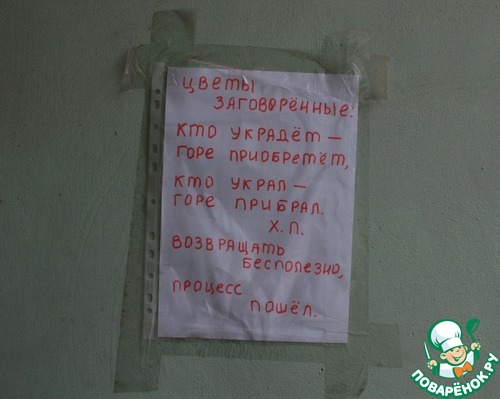 ЦВЕТЫ
ЗАГОВОРЁННЫЕ.
КТО УКРАДЁТ –
ГОРЕ ПРИОБРЕТЁТ,
КТО УКРАЛ –
ГОРЕ ПРИБРАЛ.
Х.П.
ВОЗВРАЩАТЬ
БЕСПОЛЕЗНО,
ПРОЦЕСС
ПОШЁЛ.
ПОВАРЁНОК.РУ